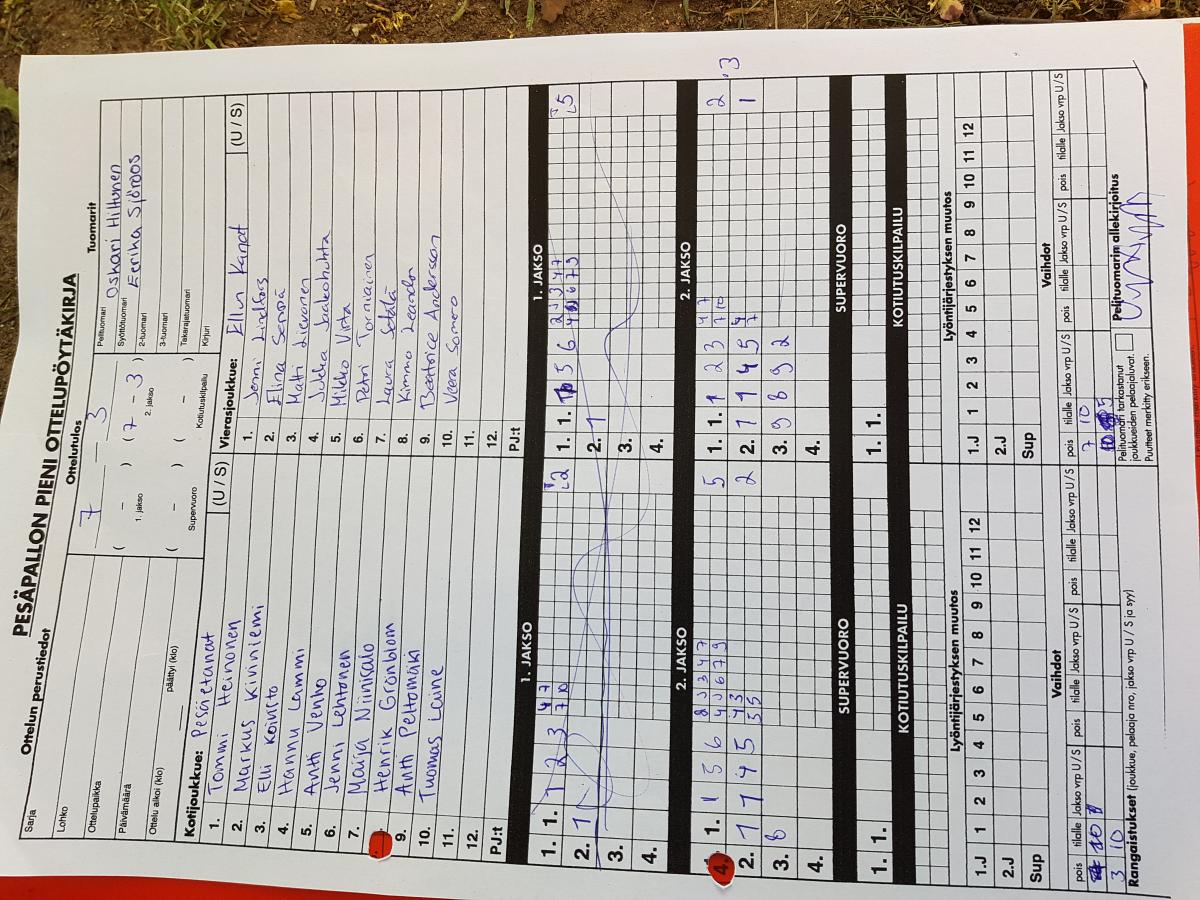 PESÄPALLON PIENI OTTELUPÖYTÄKIRJA
Ottelun perustiedot
Sarja
Lohko
Ottelupaikka
Päivämäärä
Ottelu alkoi (klo) päättyi (klo)
Ottelutulos
7 – 3
( – ) ( 7 – 3 )
1. jakso 2. jakso
( – ) ( – )
Supervuoro Kotiutuskilpailu
Tuomarit
Pelituomari Oskari Hiltunen
Syöttötuomari Eerika Sjöroos
2-tuomari
3-tuomari
Takarajatuomari
Kirjuri
Kotijoukkue: Pesäretanat (U / S)
1. Tommi Heinonen
2. Markus Kiviniemi
3. Elli Koivisto
4. Hannu Lammi
5. Antti Venho
6. Jenni Lehtonen
7. Maija Niinisalo
Henrik Grönblom
9. Antti Peltomäki
10. Tuomas Laine
11.
12.
PJ:t
Vierasjoukkue: Ellun Kanat (U / S)
1. Jenni Lindberg
2. Elina
3. Matti Lievonen
4. Jukka Jaakohuhta
5. Mikko Virta
6. Petri Torniainen
7. Laura Setälä
8. Kimmo Leander
9. Beatrice Andersson
10. Veera Somero
11.
12.
PJ:t
1. JAKSO 1. JAKSO
1. 1. 1 2 3 4 7
7 10
2. 1
3.
4.
1. 1. 5 6
2. 1
3.
4.
2. JAKSO 2. JAKSO
4. 1. 1 5 6 2 3 3 4 7 5
2. 1 1 4 5 4 3 2
5 5
3. 8
4.
1. 1. 1 2 3 4 7 2
7 10
2. 1 1 4 5 4 1
7
3. 9 8 9 2
4.
3
SUPERVUORO SUPERVUORO
1. 1. 1. 1.
KOTIUTUSKILPAILU KOTIUTUSKILPAILU
Lyöntijärjestyksen muutos Lyöntijärjestyksen muutos
1.J 1 2 3 4 5 6 7 8 9 10 11 12
2.J
Sup
1.J 1 2 3 4 5 6 7 8 9 10 11 12
2.J
Sup
Vaihdot Vaihdot
pois tilalle Jakso vrp U / S pois tilalle Jakso vrp U / S pois tilalle Jakso vrp U / S
3 10
pois tilalle Jakso vrp U / S pois tilalle Jakso vrp U / S pois tilalle Jakso vrp U / S
7 10
5
Rangaistukset (joukkue, pelaaja nro, jakso vrp U / S ja syy)
Pelituomari tarkastanut
joukkueiden pelaajaluvat.
Puutteet merkitty erikseen.
Pelituomarin allekirjoitus